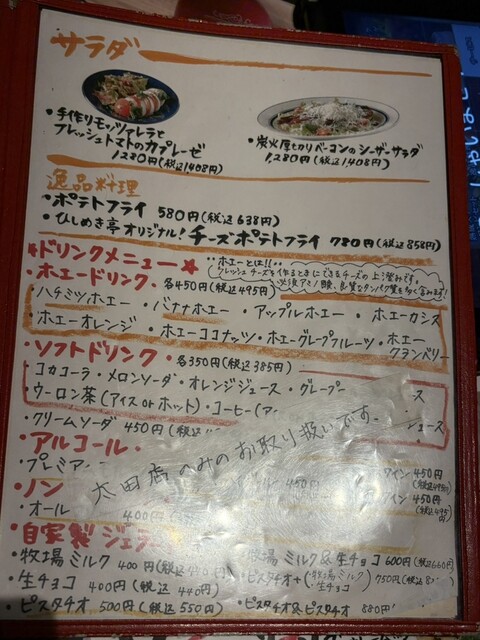 サラダ
・手作りモッツァレラと
フレッシュトマトのカプレーゼ
1,280円(税込1,408円)
・炭火厚切りベーコンのシーザーサラダ
1,280円(税込1,408円)
逸品料理
・ポテトフライ 580円(税込638円)
・ひしめき亭オリジナル!チーズポテトフライ 780円(税込858円)
★ドリンクメニュー★
"ホエーとは!!"
フレッシュチーズを作るときにできるチーズの上澄みです。
必須アミノ酸、良質なタンパク質を多く含みます!
・ホエードリンク・各450円(税込495円)
・ハチミツホエー ・バナナホエー ・アップルホエー ・ホエーカシス
・ホエーオレンジ ・ホエーココナッツ ・ホエーグレープフルーツ ・ホエークランベリー
・ソフトドリンク・各350円(税込385円)
・コカコーラ・メロンソーダ・オレンジジュース・グレープ
ス
・ウーロン茶(アイス or ホット)・コーヒー(ア
ジュース
・クリームソーダ 450円(税
・アルコール・
・プレミア
450円
イン 450円
(税込495円)
太田店のみのお取り扱いです。
・ノン
・オール
400円
イン 450円
(税込495円)
・自家製ジェラ
・牧場ミルク 400円(税込440円)
・牧場ミルク&生チョコ 600円(税込660円)
・生チョコ 400円(税込440円)
・ピスタチオ+(牧場ミルク/・生チョコ) 750円(税込8
・ピスタチオ 500円(税込550円)
・ピスタチオ&ピスタチオ 880円